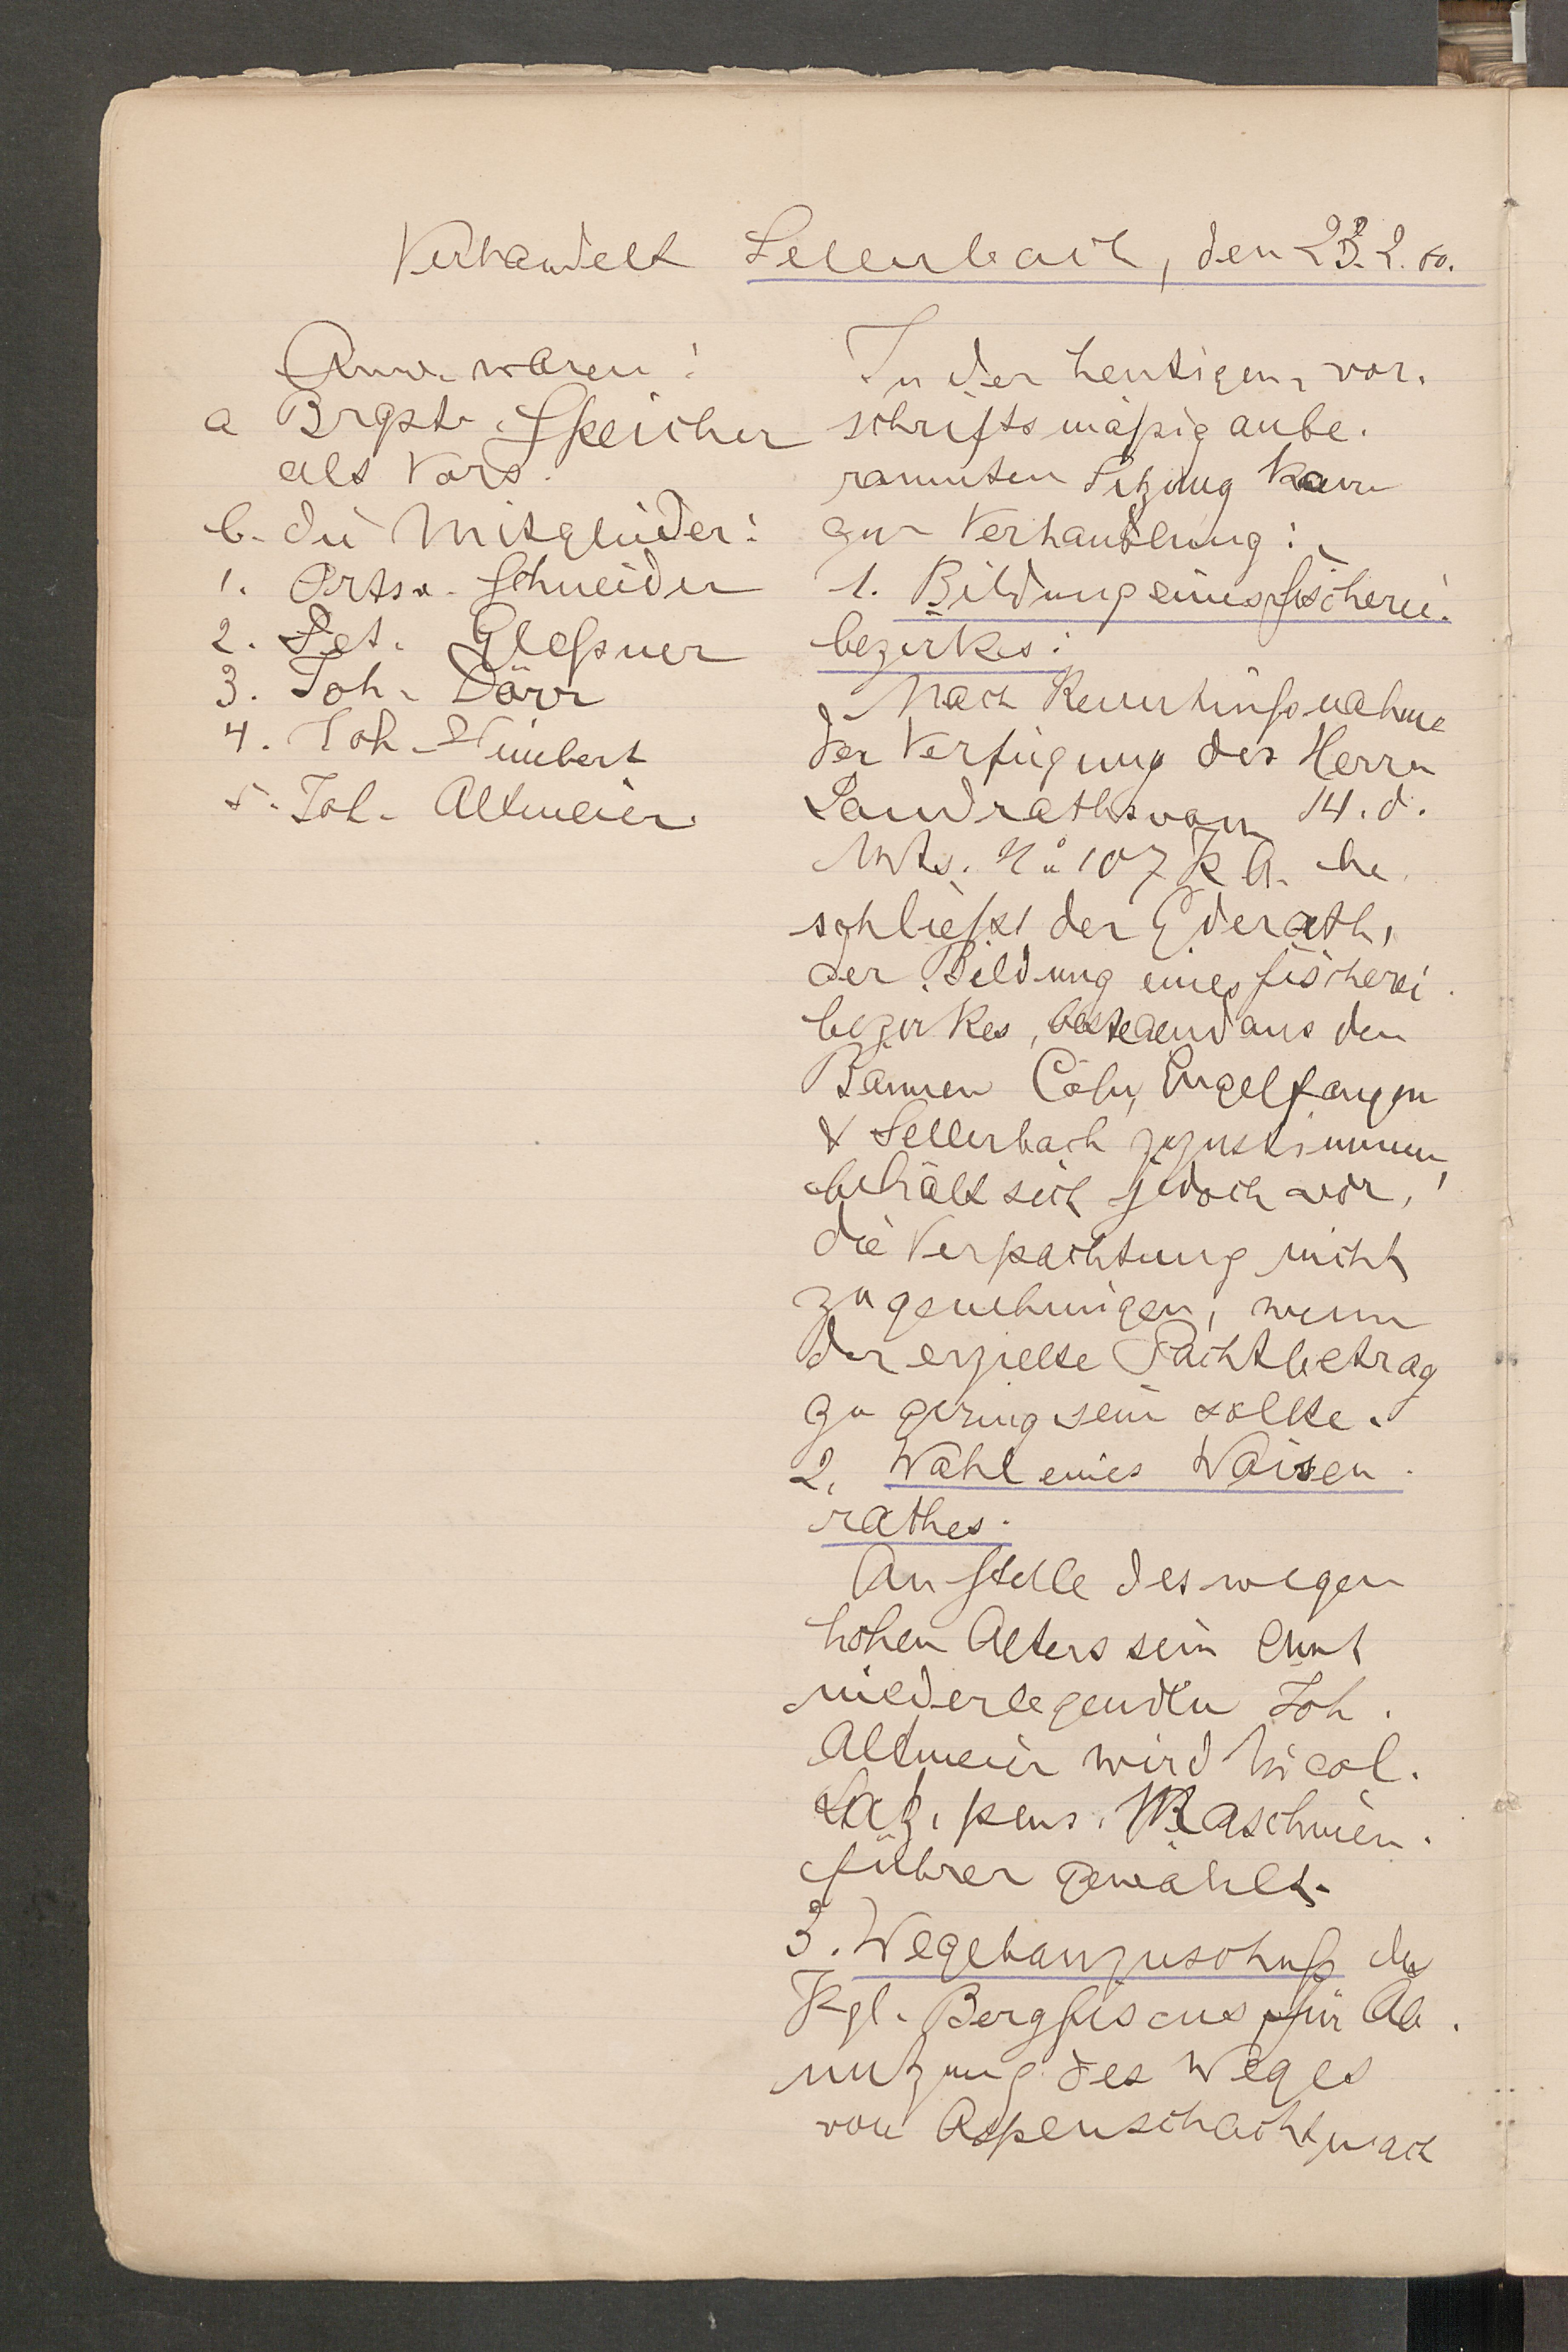 Verhandelt Sellerbach, den 23.2.00.
Anw. waren:
a Brgstr. Speicher
als Vors.
b. die Mitglieder:
1. Ortsv. Schneider
2. Pet. Gleßner
3. Joh. Dörr
4. Joh. Heimbert
5. Joh. Altmeier.
In der heutigen, vor-
schriftsmäßig anbe-
raumten Sitzung kam
zur Verhandlung:
1. Bildung eines Fischerei-
bezirkes:
Nach Kenntnißnahme
der Verfügung des Herrn
Landraths vom 14. d.
Mts. No 107 K A. be-
schließt der Gderath,
der Bildung eines Fischerei-
bezirkes, bestehend aus den
Bännen Cöln, Engelfangen
& Sellerbach zuzustimmen,
behält sich jedoch vor,
die Verpachtung nicht
zu genehmigen, wenn
der erzielte Pachtbetrag
zu gering sein sollte.
2. Wahl eines Waisen-
rathes.
An Stelle des wegen
hohen Alters sein Amt
niederlegenden Joh.
Altmeier wird Nicol.
Latz, pens. Maschinen-
führer gewählt.
3. Wegebauzuschuß des
Kgl. Bergfiscus für Ab-
nutzung des Weges
von Aspenschacht nach